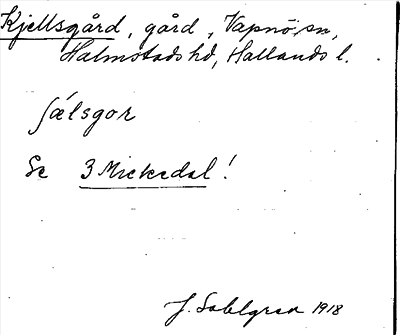 Kjellsgård, gård, Vapnö sn,
Halmstads hd, Hallands l.
ʃǽlsgor
Se 3 Mickedal!
J. Sahlgren 1918